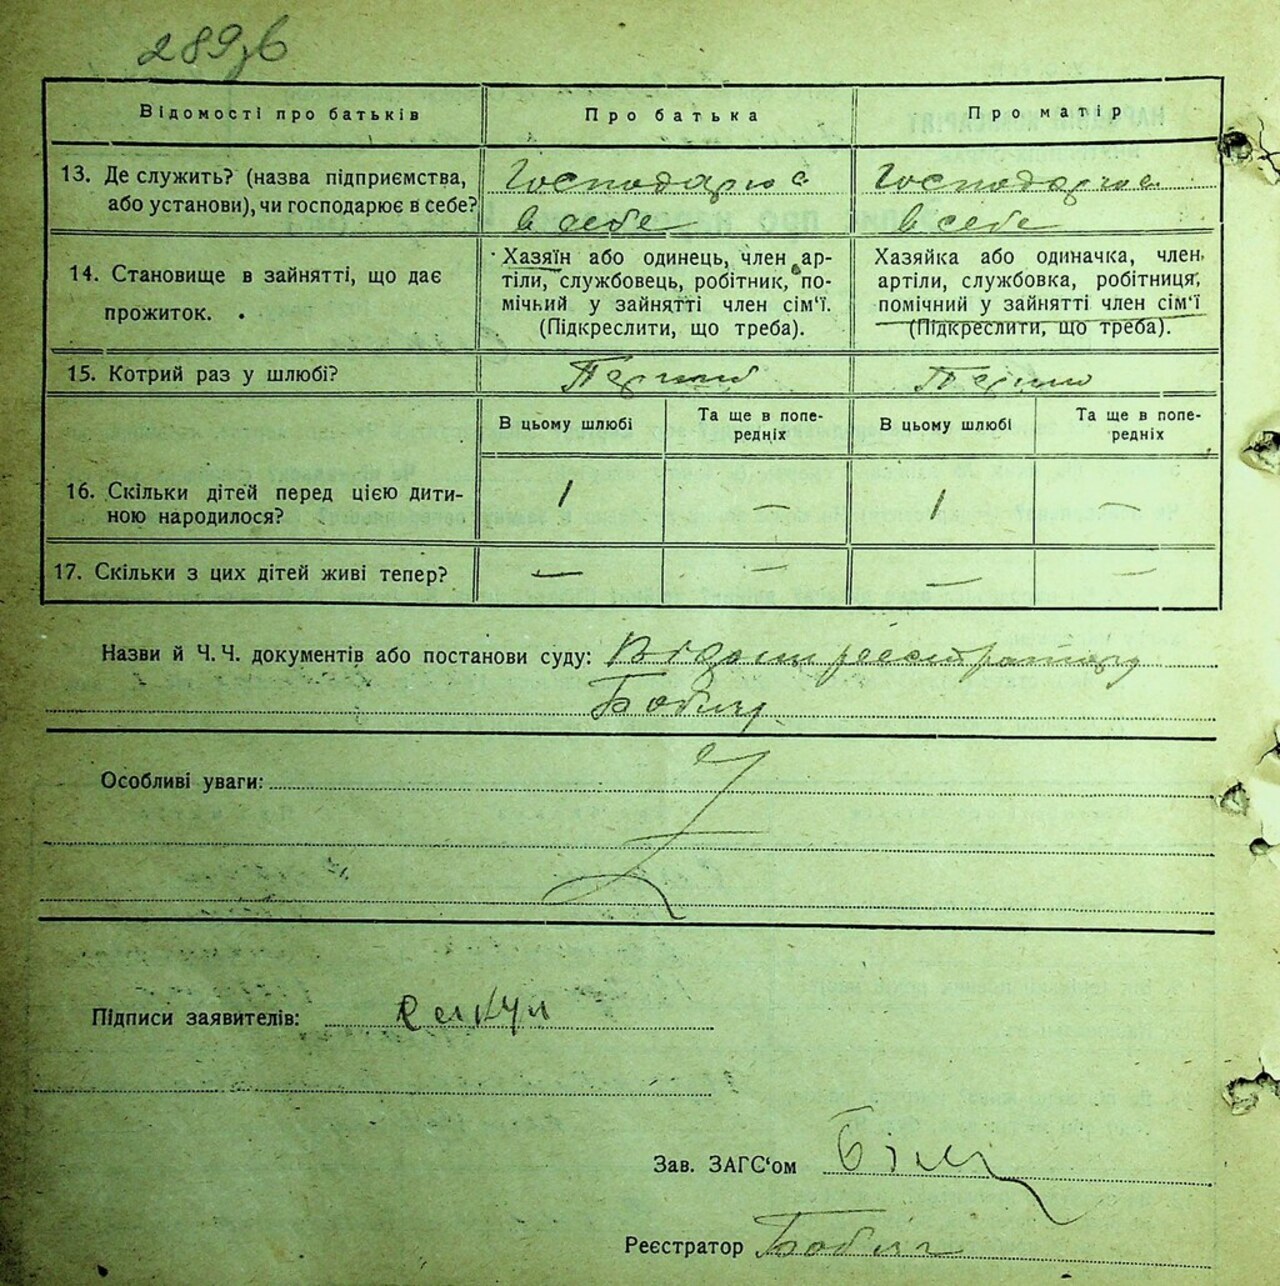 289зв
Відомості про батьків
Про батька
Про матір
13. Де служить? (назва підприємства,
або установи), чи господарює в себе?
Господарює
в себе
Господарює
в себе
14. Становище в зайнятті, що дає
прожиток.
Хазяїн або одинець, член ар-
тіли, службовець, робітник, по-
мічний у зайнятті член сім‘ї.
(Підкреслити, що треба).
Хазяйка або одиначка, член
артіли, службовка, робітниця,
помічний у зайнятті член сім‘ї
(Підкреслити, що треба).
15. Котрий раз у шлюбі?
Перший
Перший
В цьому шлюбі
Та ще в попе-
редніх
В цьому шлюбі
Та ще в попе-
редніх
16. Скільки дітей перед цією дити-
ною народилося?
1 —
1 —
17. Скільки з цих дітей живі тепер?
— —
— —
Назви й Ч. Ч. документів або постанови суду:
Особливі уваги:
Підписи заявителів:
Зав. ЗАГС‘ом
Реєстратор